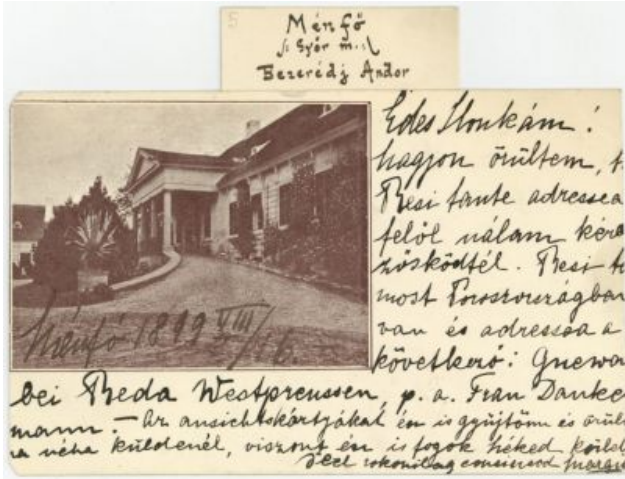 5
Ménfő
/: Győr m. :/
Bezerédj Andor
Édes Ilonkám!
nagyon örültem, h
Resi tante adressea
felöl nálam kére
zősködtél. Resi t
most Poroszországban
van és adressea a
következő: Gnewa
Ménfő 1899 VIII/16.
bei Rheda Westpreussen, p. a. Frau Danke
mann. — Az ansichtskártyákat én is gyüjtöm és örül
ha néha küldenél, viszont én is fogok néked küld
rokonilag Margit